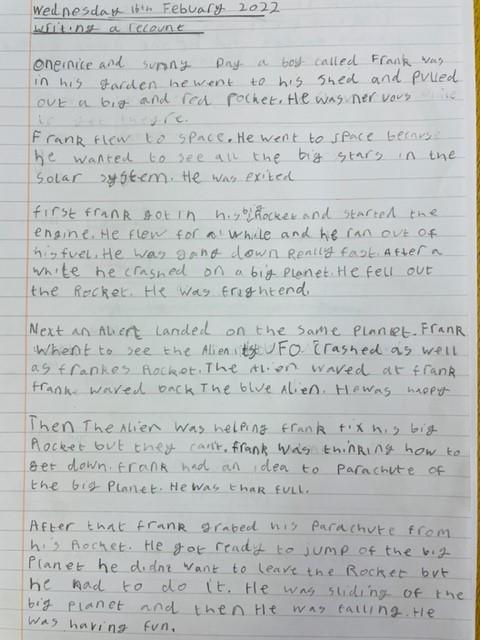 Wednesday 16th Febuary 2022
Writing a recount
One nice and sunny Day a boy called Frank was
in his garden he went to his shed and pulled
out a big and red rocket. He was nervous
Frank flew to space. He went to space because
he wanted to see all the big stars in the
solar system. He was exited
first frank got in his big Rocket and started the
engine. He flew for a while and he ran out of
his fuel. He was gong down Really fast. After a
white he crashed on a big Planet. He fell out
the Rocket. He was frightend.
Next an Alien landed on the same Planet. Frank
whent to see the Alien its UFO Crashed as well
as frankes Rocket. The Alien waved at frank
frank waved back The blue Alien. He was happy
Then The Alien was helping frank fix his big
Rocket but they cant. frank was thinking how to
get down. frank had an idea to Parachute of
the big Planet. He was thak full.
After that frank grabed his Parachute from
his Rocket. He got ready to jump of the big
Planet he didnt want to leave the Rocket but
he had to do it. He was sliding of the
big planet and then He was falling. He
was having fun.